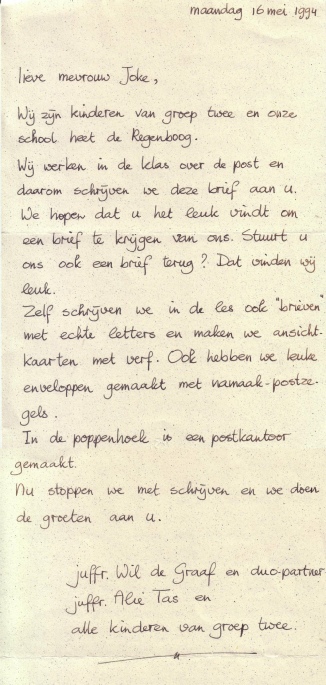 maandag 16 mei 1994
lieve mevrouw Joke,
Wij zijn kinderen van groep twee en onze
school heet de Regenboog.
Wij werken in de klas over de post en
daarom schrijven we deze brief aan u.
We hopen dat u het leuk vindt om
een brief te krijgen van ons. Stuurt u
ons ook een brief terug? Dat vinden wij
leuk.
Zelf schrijven we in de les ook "brieven"
met echte letters en maken we ansicht-
kaarten met verf. Ook hebben we leuke
enveloppen gemaakt met namaak-postze-
gels.
In de poppenhoek is een postkantoor
gemaakt.
Nu stoppen we met schrijven en we doen
de groeten aan u.
juffr. Wil de Graaf en duo-partner
juffr. Alie Tas en
alle kinderen van groep twee.